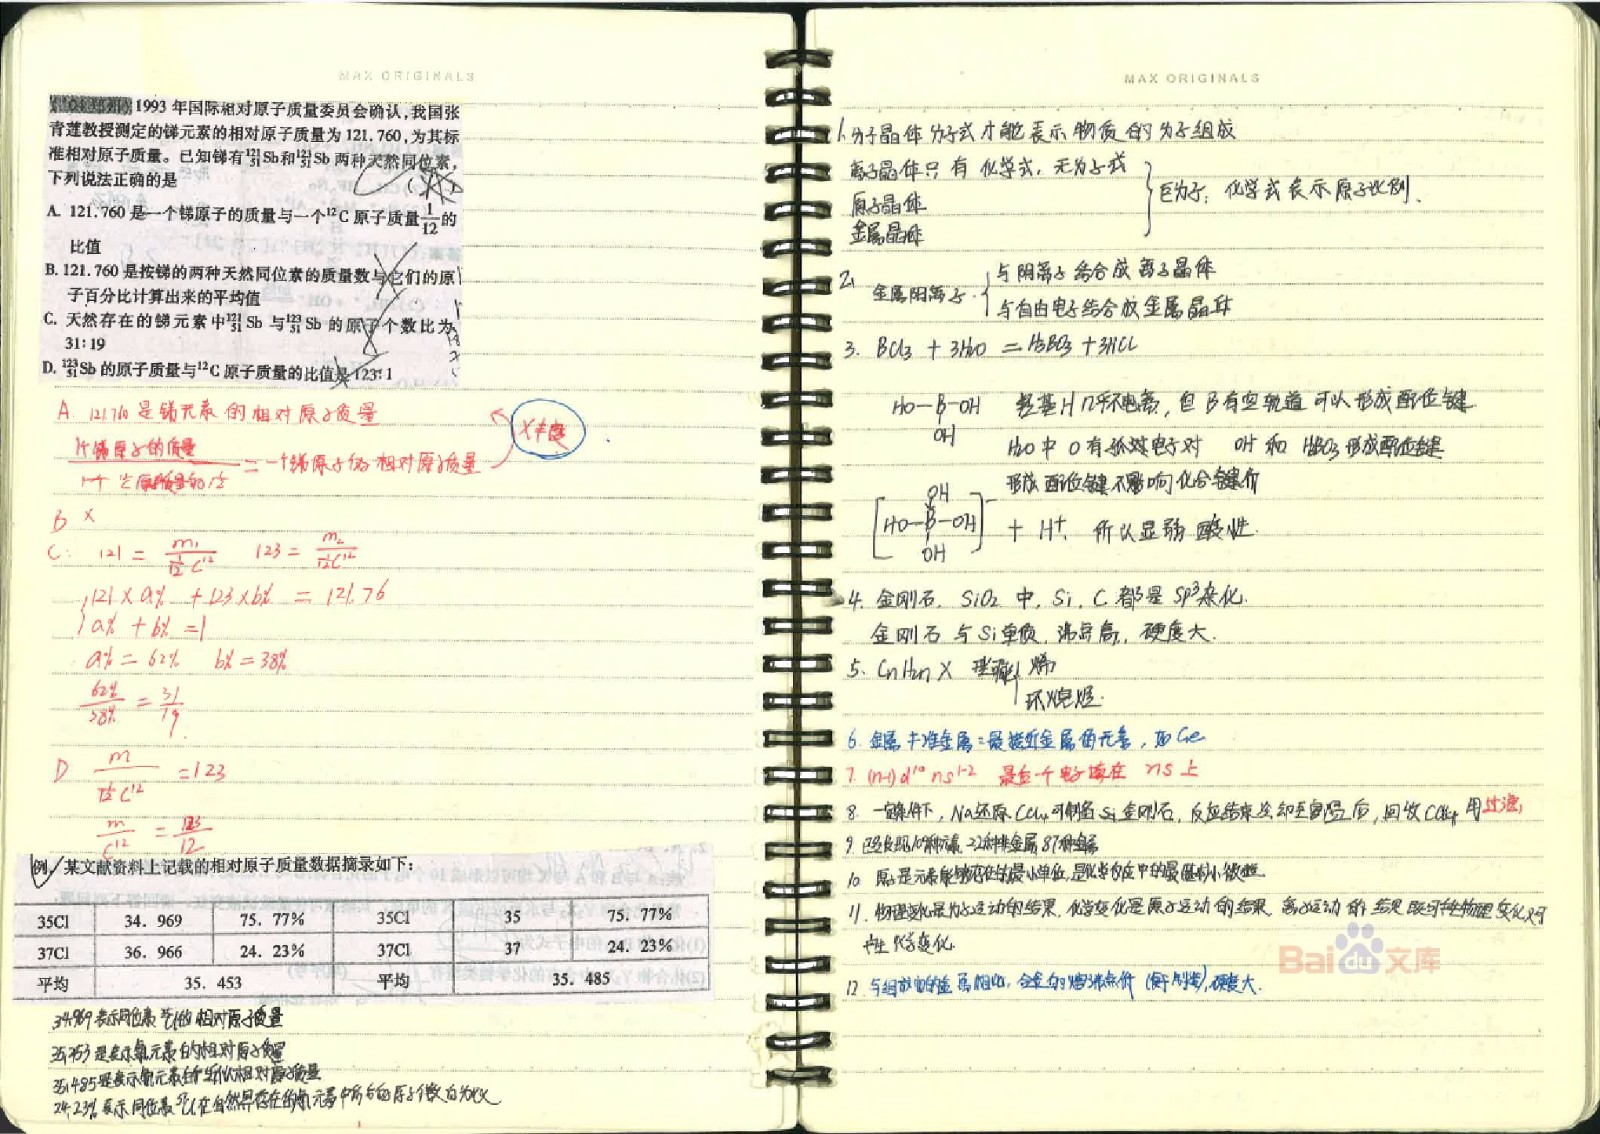 MAX ORIGINALS
1993年国际相对原子质量委员会确认,我国张
青莲教授测定的锑元素的相对原子质量为121.760,为其标
准相对原子质量。已知锑有¹²¹₅₁Sb和¹²³₅₁Sb两种天然同位素,
下列说法正确的是
A. 121.760是一个锑原子的质量与一个¹²C原子质量1/12的
比值
B. 121.760是按锑的两种天然同位素的质量数与它们的原
子百分比计算出来的平均值
C. 天然存在的锑元素中¹²¹₅₁Sb与¹²³₅₁Sb的原子个数比为
31:19
D. ¹²³₅₁Sb的原子质量与¹²C原子质量的比值是123:1
A. 121.760是锑元素的相对原子质量
1个锑原子的质量 = 一个锑原子的相对原子质量
B ×
C: 121 = m₁/(1/12 C¹²) 123 = m₂/(1/12 C¹²)
121×a% + 123×b% = 121.76
a% + b% = 1
a% = 62% b% = 38%
62%/38% = 31/19
D m/(1/12 C¹²) = 123
m/C¹² = 123/12
例 某文献资料上记载的相对原子质量数据摘录如下:
35Cl 34.969 75.77% 35Cl 35 75.77%
37Cl 36.966 24.23% 37Cl 37 24.23%
平均 35.453 平均 35.485
34.969表示同位素³⁵Cl的相对原子质量
35.453是表示氯元素的相对原子质量
35.485是表示氯元素的近似相对原子质量
24.23%表示同位素³⁷Cl在自然界存在的氯元素中所占的原子个数百分比
MAX ORIGINALS
1. 分子晶体分子式才能表示物质的分子组成
离子晶体只有化学式,无分子式
原子晶体
金属晶体
巨分子:化学式表示原子比例.
2. 金属阳离子
与阴离子结合成离子晶体
与自由电子结合成金属晶体
3. BCl₃ + 3H₂O = H₃BO₃ + 3HCl
HO—B—OH
OH
羟基H几乎不电离,但B有空轨道可以形成配位键
H₂O中O有孤对电子对 OH和H₃BO₃形成配位键
形成配位键不影响化合价
[HO—B—OH]⁻ + H⁺. 所以显弱酸性.
OH
OH
4. 金刚石,SiO₂中,Si,C都是sp³杂化.
金刚石与Si单质,沸点高,硬度大.
5. CnH₂n ×
烯
环烷烃.
6. 金属 + 准金属:最接近金属的元素,如Ge
7. (n-1)d¹⁰ns¹⁻² 最后一个电子填在ns上
8. 一定条件下,Na还原CCl₄可制备金刚石,反应结束冷却至室温后,回收CCl₄用过滤
9. 22种非金属 87种金属
10
11. 物理变化是分子运动的结果,化学变化是原子运动的结果,离子运动的结果既可能物理变化又可
能化学变化.
12. 与组成的金属相比,合金的熔沸点低,硬度大.
Bai du 文库